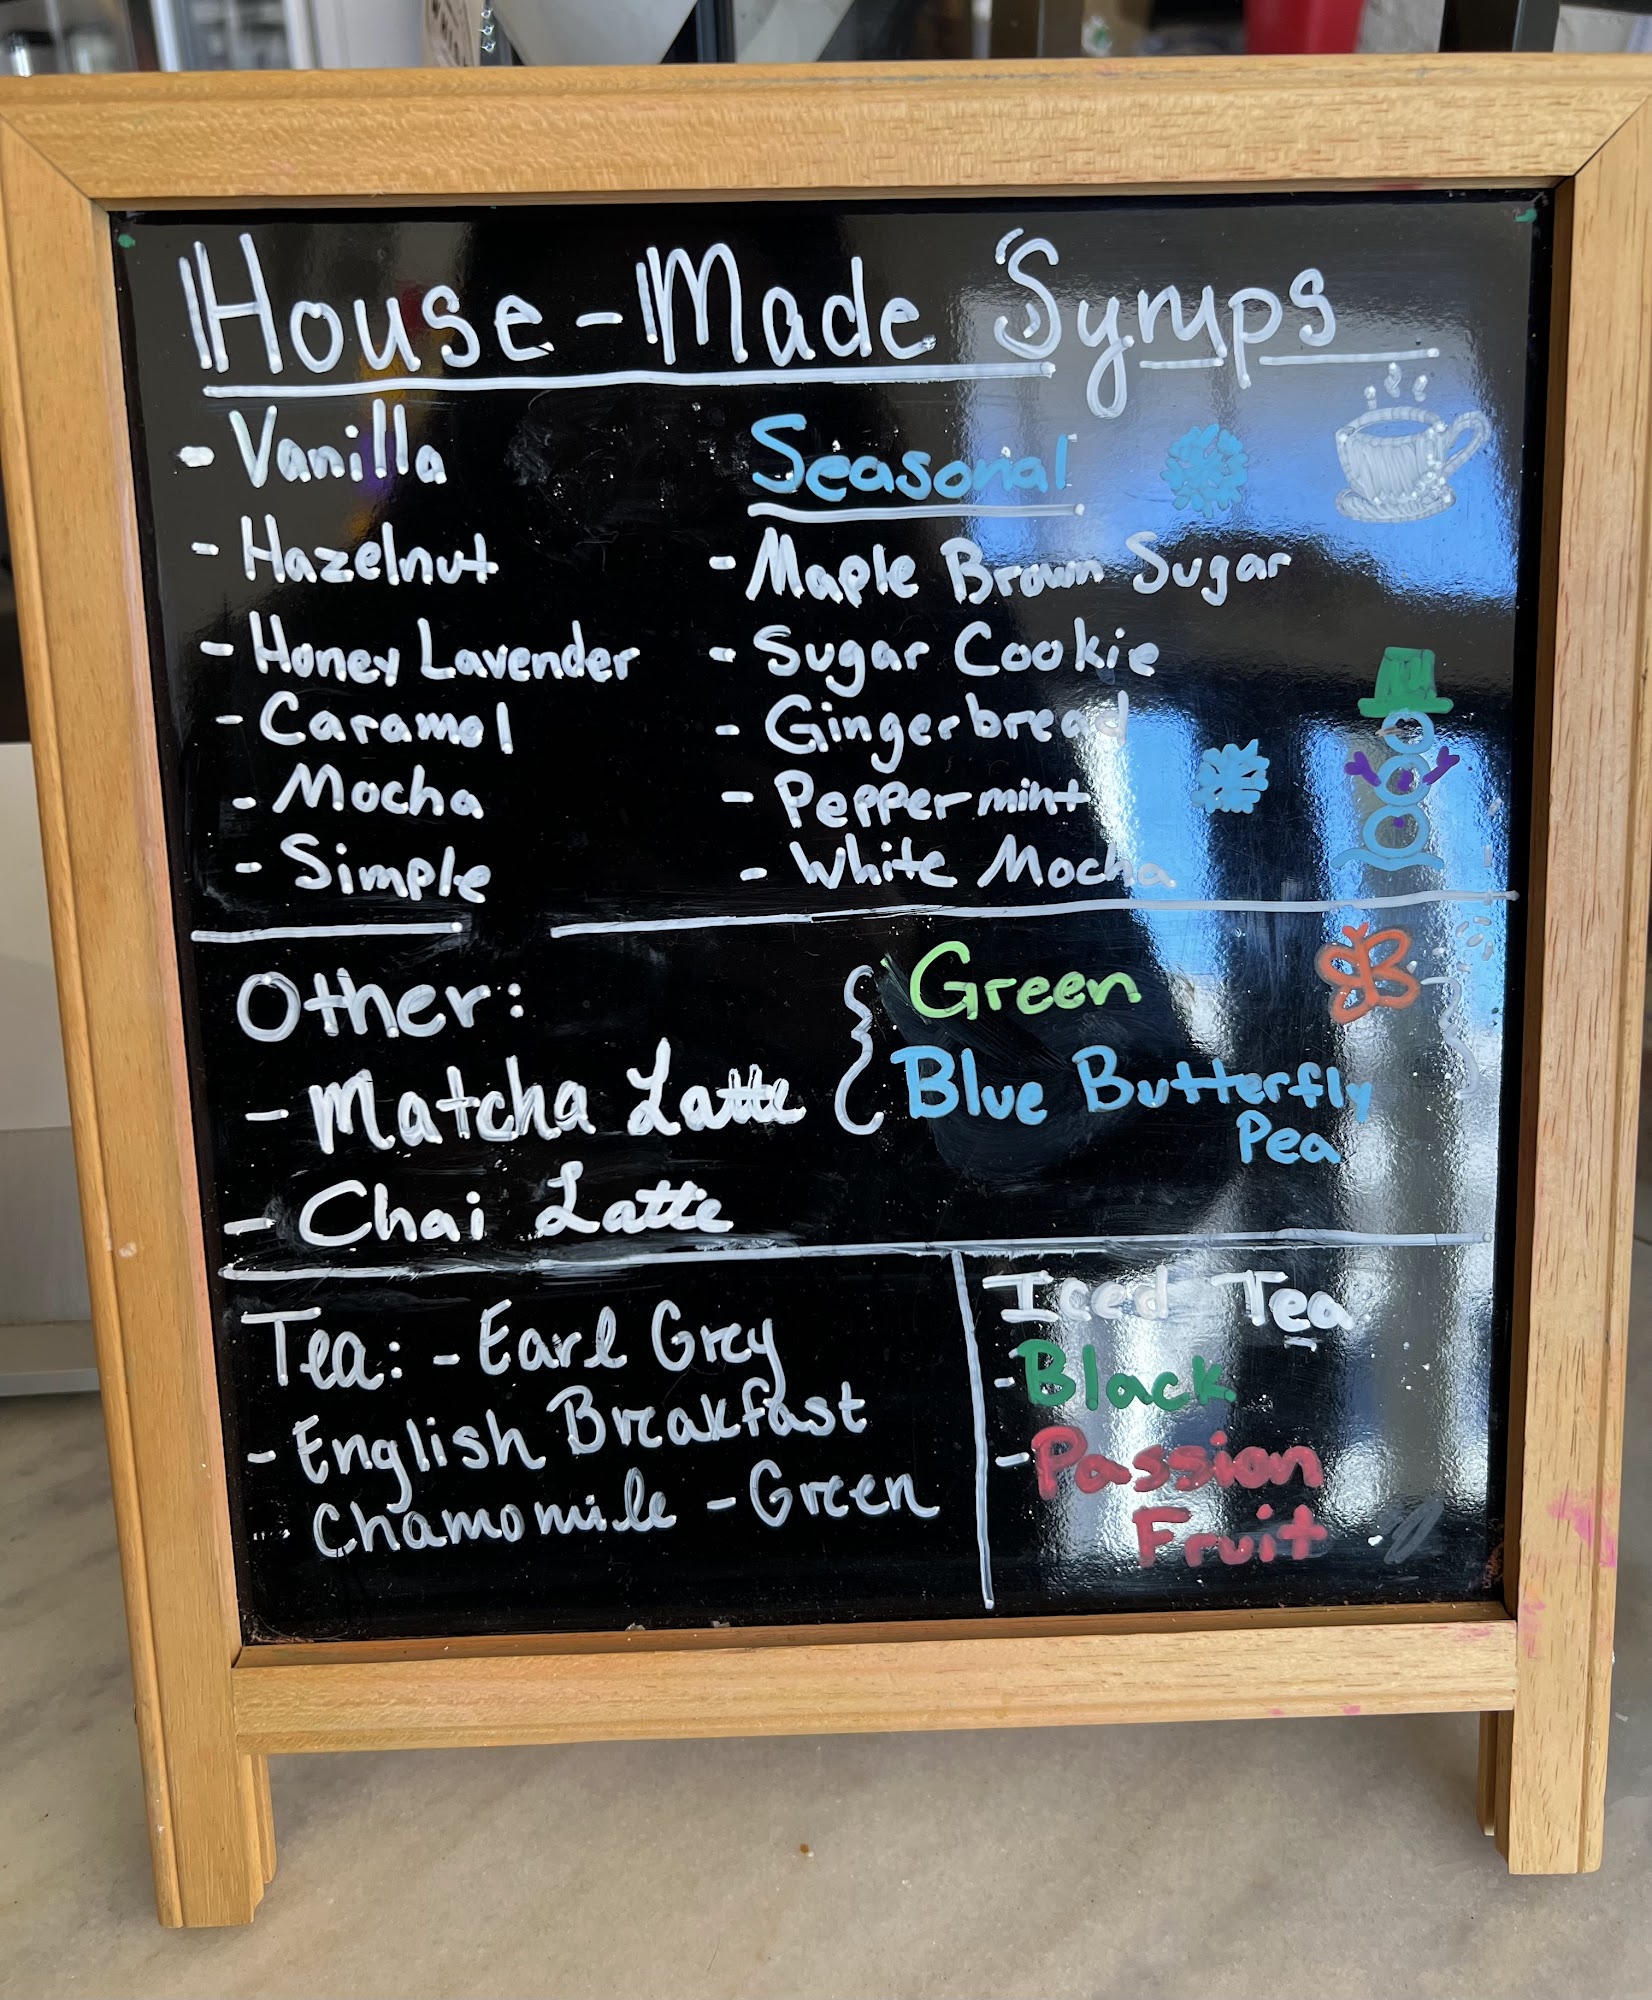 House-Made Syrups
- Vanilla
- Hazelnut
- Honey Lavender
- Caramel
- Mocha
- Simple
Seasonal
- Maple Brown Sugar
- Sugar Cookie
- Gingerbread
- Peppermint
- White Mocha
Other:
- Matcha Latte { Green
Blue Butterfly
Pea
- Chai Latte
Tea: - Earl Grey
- English Breakfast
- Chamomile - Green
Iced Tea
- Black
- Passion
Fruit